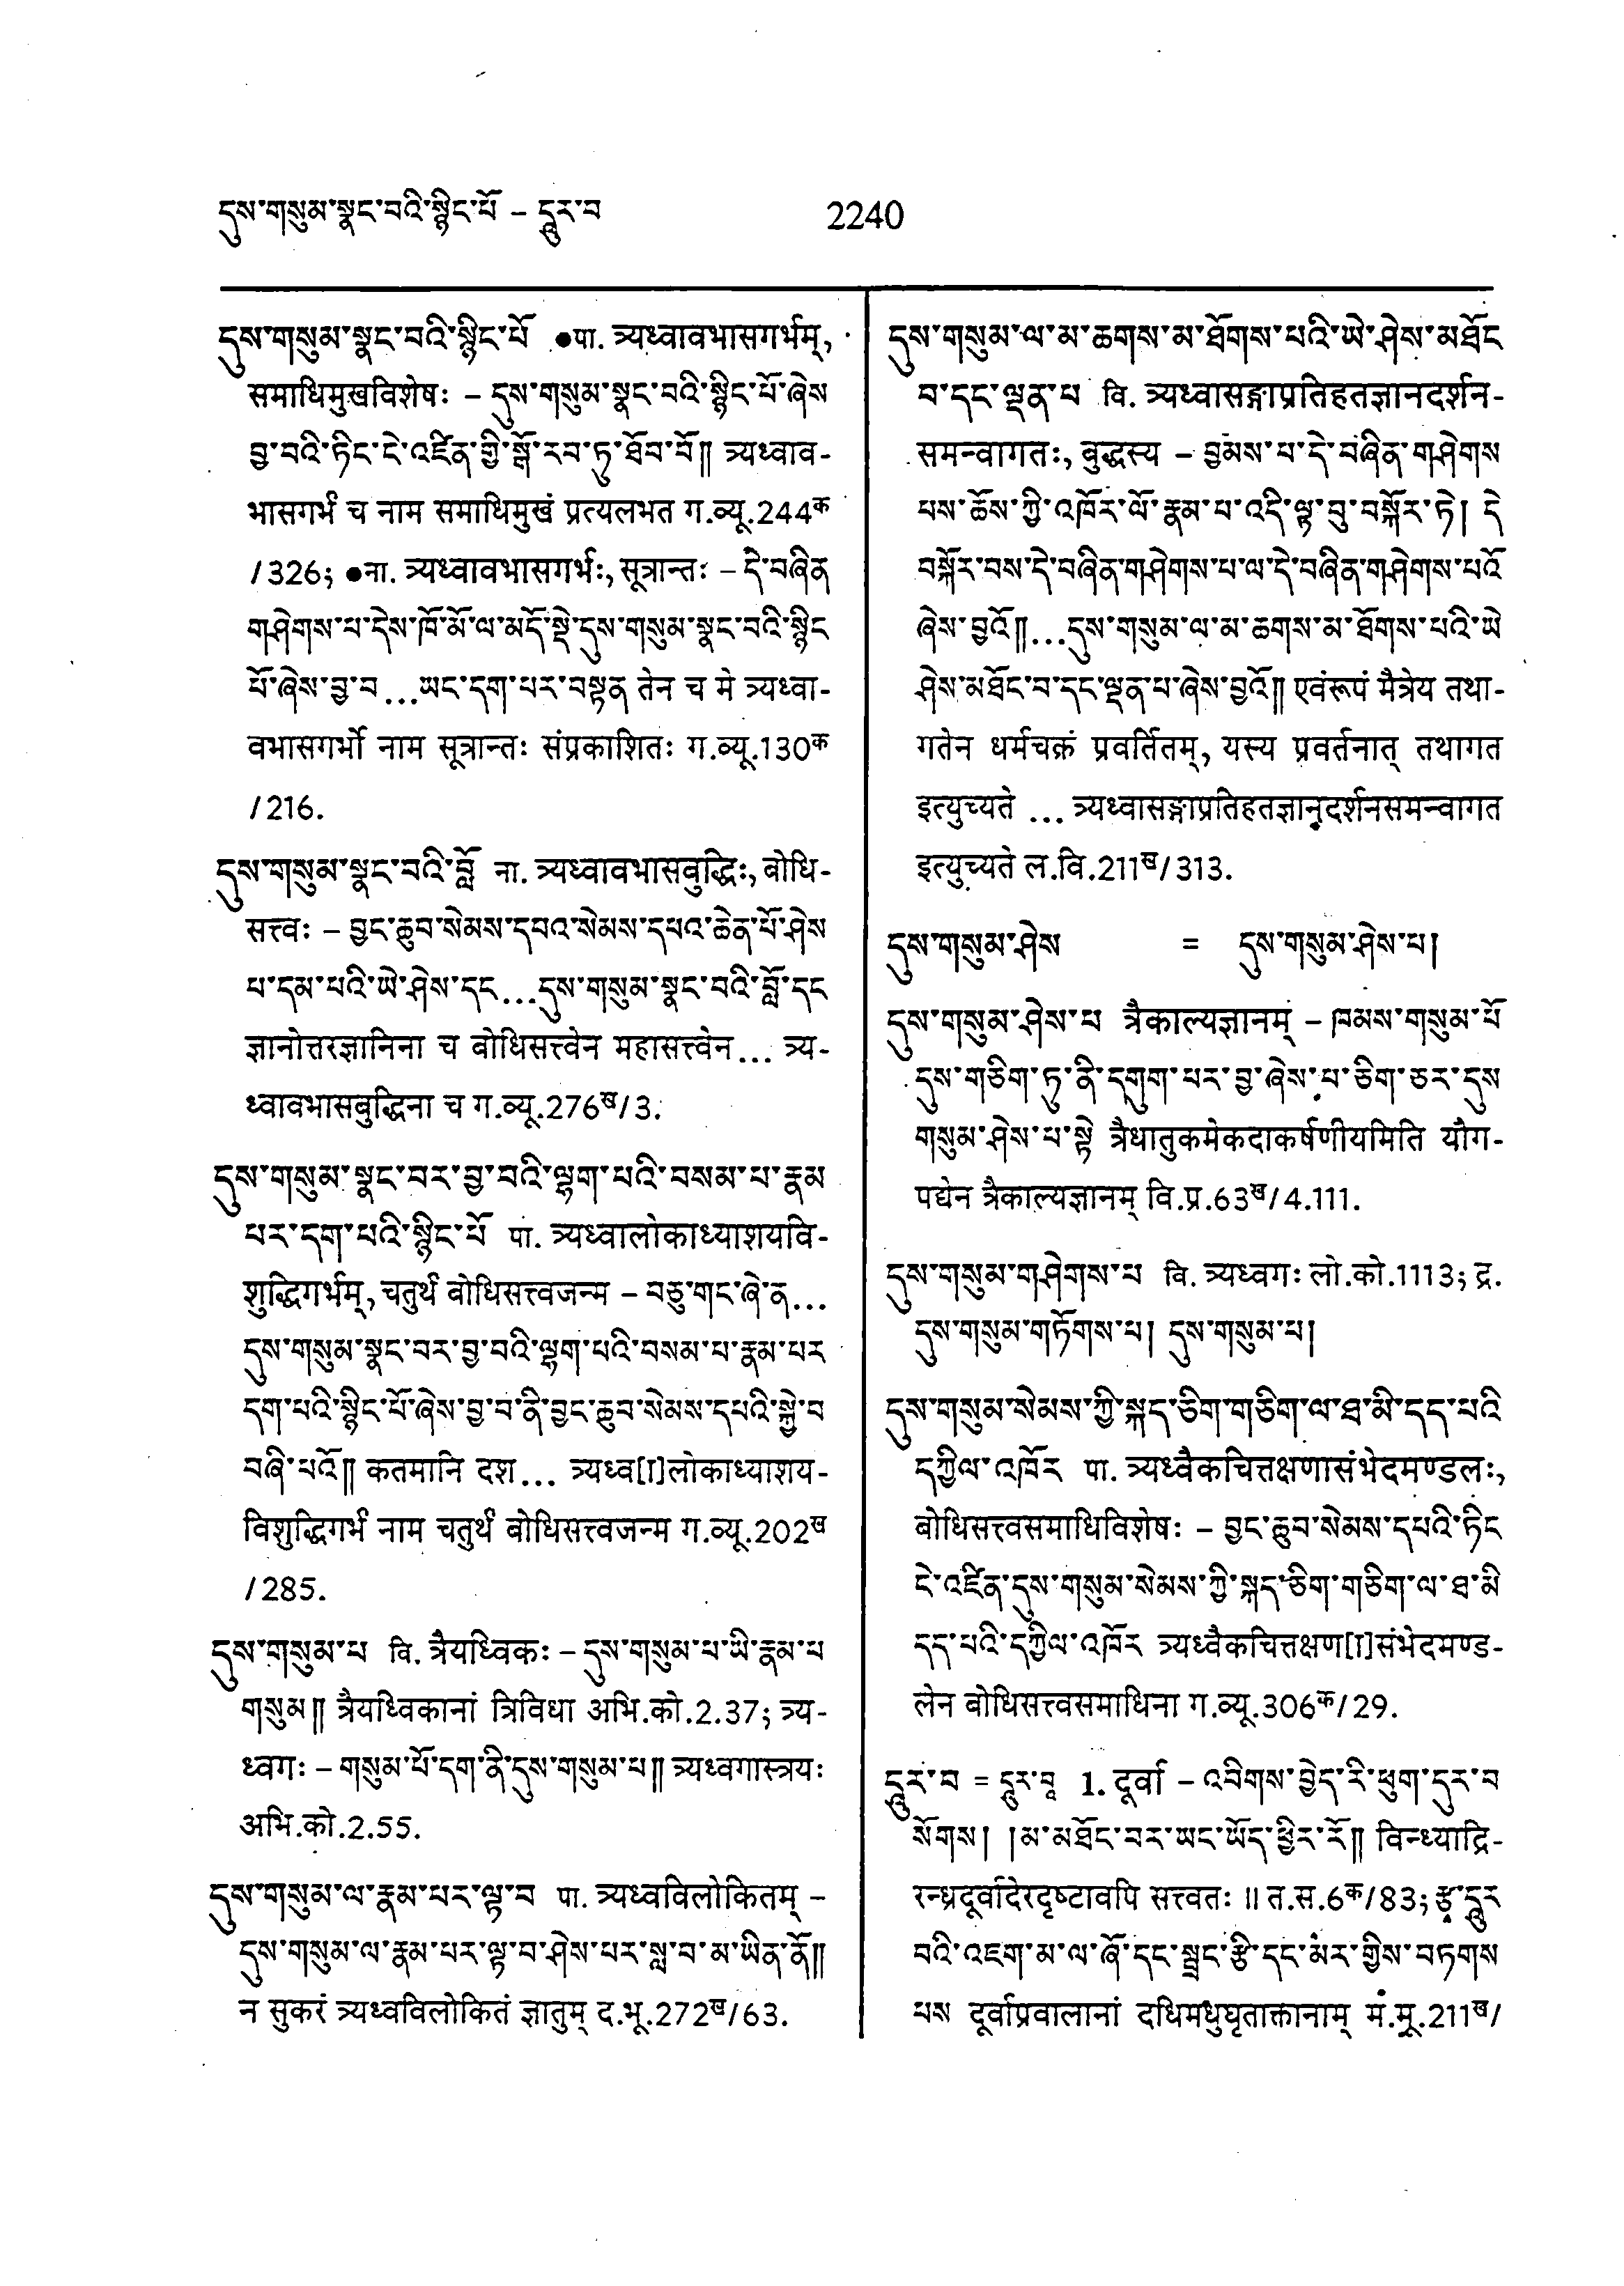 དུས་གསུམ་སྣང་བའི་སྙིང་པོ – དཱུར་བ
2240
དུས་གསུམ་སྣང་བའི་སྙིང་པོ ●पा. त्र्यध्वावभासगर्भम्,
समाधिमुखविशेषः – དུས་གསུམ་སྣང་བའི་སྙིང་པོ་ཞེས
བྱ་བའི་ཏིང་ངེ་འཛིན་གྱི་སྒོ་རབ་ཏུ་ཐོབ་བོ༎ त्र्यध्वाव-
भासगर्भं च नाम समाधिमुखं प्रत्यलभत ग.व्यू.244क
/326; ●ना. त्र्यध्वावभासगर्भः, सूत्रान्तः – དེ་བཞིན
གཤེགས་པ་དེས་ཁོ་མོ་ལ་མདོ་སྡེ་དུས་གསུམ་སྣང་བའི་སྙིང
པོ་ཞེས་བྱ་བ...ཡང་དག་པར་བསྟན तेन च मे त्र्यध्वा-
वभासगर्भो नाम सूत्रान्तः संप्रकाशितः ग.व्यू.130क
/216.
དུས་གསུམ་སྣང་བའི་བློ ना. त्र्यध्वावभासबुद्धिः, बोधि-
सत्त्वः – བྱང་ཆུབ་སེམས་དཔའ་སེམས་དཔའ་ཆེན་པོ་ཤེས
པ་དམ་པའི་ཡེ་ཤེས་དང...དུས་གསུམ་སྣང་བའི་བློ་དང
ज्ञानोत्तरज्ञानिना च बोधिसत्त्वेन महासत्त्वेन... त्र्य-
ध्वावभासबुद्धिना च ग.व्यू.276ख/3.
དུས་གསུམ་སྣང་བར་བྱ་བའི་ལྷག་པའི་བསམ་པ་རྣམ
པར་དག་པའི་སྙིང་པོ पा. त्र्यध्वालोकाध्याशयवि-
शुद्धिगर्भम्, चतुर्थं बोधिसत्त्वजन्म – བཅུ་གང་ཞེ་ན...
དུས་གསུམ་སྣང་བར་བྱ་བའི་ལྷག་པའི་བསམ་པ་རྣམ་པར
དག་པའི་སྙིང་པོ་ཞེས་བྱ་བ་ནི་བྱང་ཆུབ་སེམས་དཔའི་སྐྱེ་བ
བཞི་པའོ༎ कतमानि दश... त्र्यध्व[ा]लोकाध्याशय-
विशुद्धिगर्भं नाम चतुर्थं बोधिसत्त्वजन्म ग.व्यू.202ख
/285.
དུས་གསུམ་པ वि. त्रैयध्विकः – དུས་གསུམ་པ་ཡི་རྣམ་པ
གསུམ༎ त्रैयध्विकानां त्रिविधा अभि.को.2.37; त्र्य-
ध्वगः – གསུམ་པོ་དག་ནི་དུས་གསུམ་པ༎ त्र्यध्वगास्त्रयः
अभि.को.2.55.
དུས་གསུམ་ལ་རྣམ་པར་ལྟ་བ पा. त्र्यध्वविलोकितम् –
དུས་གསུམ་ལ་རྣམ་པར་ལྟ་བ་ཤེས་པར་སླ་བ་མ་ཡིན་ནོ༎
न सुकरं त्र्यध्वविलोकितं ज्ञातुम् द.भू.272ख/63.
དུས་གསུམ་ལ་མ་ཆགས་མ་ཐོགས་པའི་ཡེ་ཤེས་མཐོང
བ་དང་ལྡན་པ वि. त्र्यध्वासङ्गाप्रतिहतज्ञानदर्शन-
समन्वागतः, बुद्धस्य – བྱམས་པ་དེ་བཞིན་གཤེགས
པས་ཆོས་ཀྱི་འཁོར་ལོ་རྣམ་པ་འདི་ལྟ་བུ་བསྐོར་ཏེ། དེ
བསྐོར་བས་དེ་བཞིན་གཤེགས་པ་ལ་དེ་བཞིན་གཤེགས་པའོ
ཞེས་བྱའོ༎...དུས་གསུམ་ལ་མ་ཆགས་མ་ཐོགས་པའི་ཡེ
ཤེས་མཐོང་བ་དང་ལྡན་པ་ཞེས་བྱའོ༎ एवंरूपं मैत्रेय तथा-
गतेन धर्मचक्रं प्रवर्तितम्, यस्य प्रवर्तनात् तथागत
इत्युच्यते ... त्र्यध्वासङ्गाप्रतिहतज्ञानदर्शनसमन्वागत
इत्युच्यते ल.वि.211ख/313.
དུས་གསུམ་ཤེས = དུས་གསུམ་ཤེས་པ།
དུས་གསུམ་ཤེས་པ त्रैकाल्यज्ञानम् – ཁམས་གསུམ་པོ
དུས་གཅིག་ཏུ་ནི་དགུག་པར་བྱ་ཞེས་པ་ཅིག་ཅར་དུས
གསུམ་ཤེས་པ་སྟེ त्रैधातुकमेकदाकर्षणीयमिति यौग-
पद्येन त्रैकाल्यज्ञानम् वि.प्र.63ख/4.111.
དུས་གསུམ་གཤེགས་པ वि. त्र्यध्वगः लो.को.1113; द्र.
དུས་གསུམ་གཏོགས་པ། དུས་གསུམ་པ།
དུས་གསུམ་སེམས་ཀྱི་སྐད་ཅིག་གཅིག་ལ་ཐ་མི་དད་པའི
དཀྱིལ་འཁོར पा. त्र्यध्वैकचित्तक्षणासंभेदमण्डलः,
बोधिसत्त्वसमाधिविशेषः – བྱང་ཆུབ་སེམས་དཔའི་ཏིང
ངེ་འཛིན་དུས་གསུམ་སེམས་ཀྱི་སྐད་ཅིག་གཅིག་ལ་ཐ་མི
དད་པའི་དཀྱིལ་འཁོར त्र्यध्वैकचित्तक्षण[ा]संभेदमण्ड-
लेन बोधिसत्त्वसमाधिना ग.व्यू.306क/29.
དཱུར་བ = དཱུར་བཱ 1. दूर्वा – འབིགས་བྱེད་རི་ཕུག་དུར་བ
སོགས། །མ་མཐོང་བར་ཡང་ཡོད་ཕྱིར་རོ༎ विन्ध्याद्रि-
रन्ध्रदूर्वादेरदृष्टावपि सत्त्वतः ॥ त.स.6क/83; རྩྭ་དཱུར
བའི་འཇག་མ་ལ་ཞོ་དང་སྦྲང་རྩི་དང་མར་གྱིས་བཏགས
པས दूर्वाप्रवालानां दधिमधुघृताक्तानाम् मं.मू.211ख/